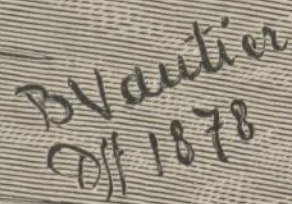 B Vautier
Dff 1878